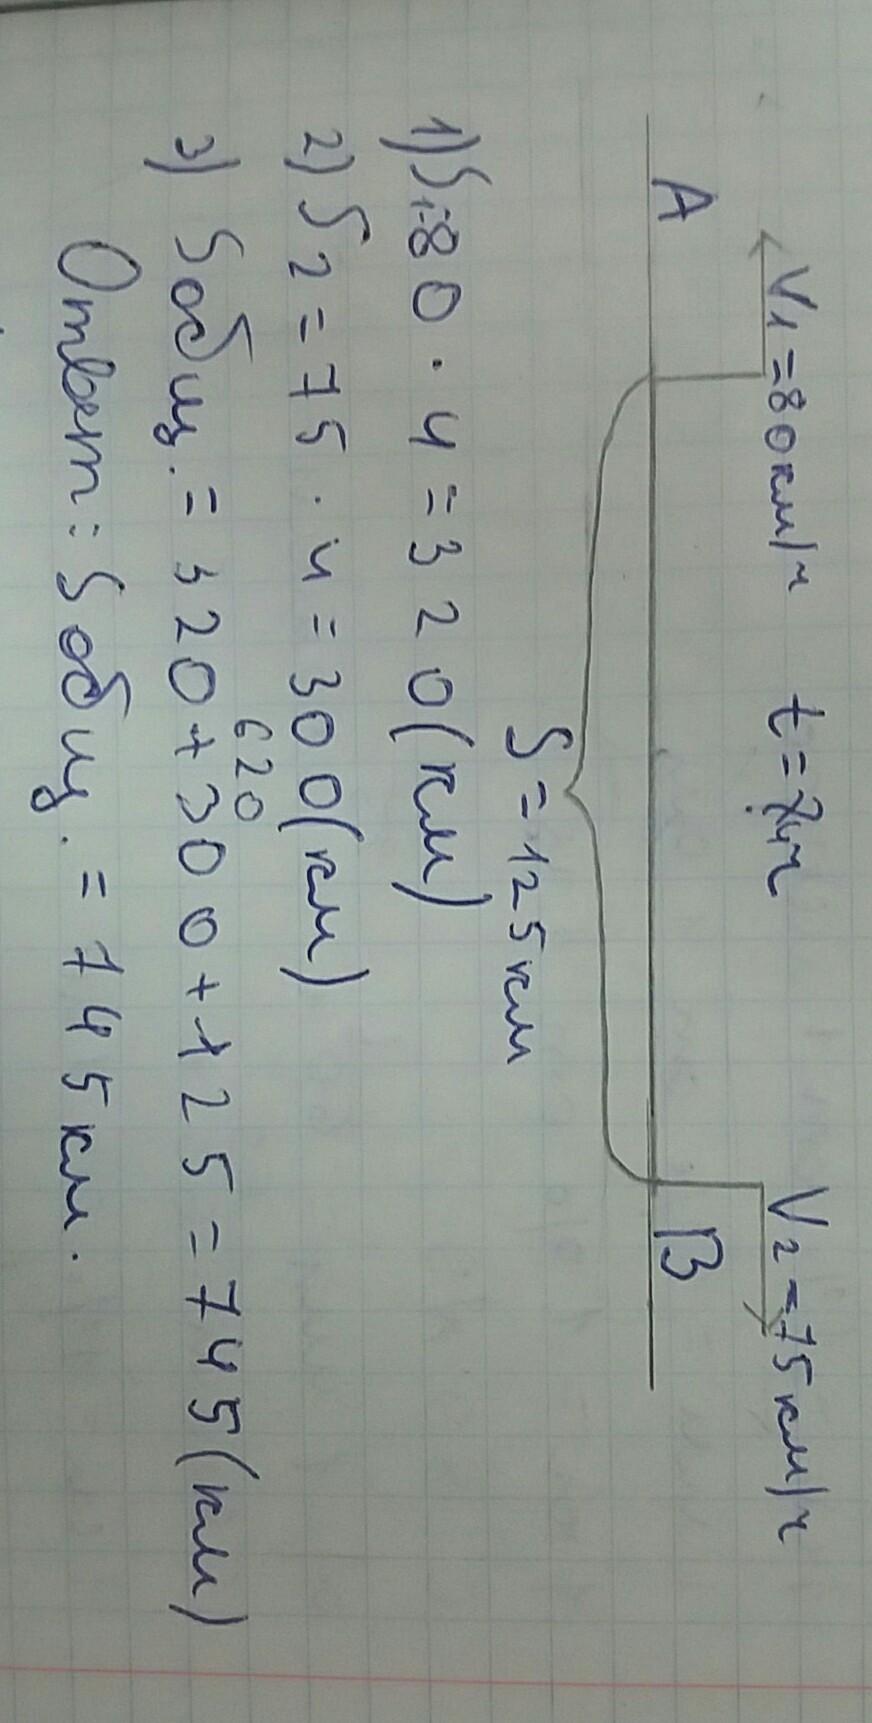 V1 = 80км/ч t = 4ч V2 = 75км/ч
A B
S = 125км
1) S1=80 · 4 = 320(км)
2) S2 = 75 · 4 = 300(км)
620
3) Sобщ. = 320 + 300 + 125 = 745(км)
Ответ: Sобщ. = 745км.